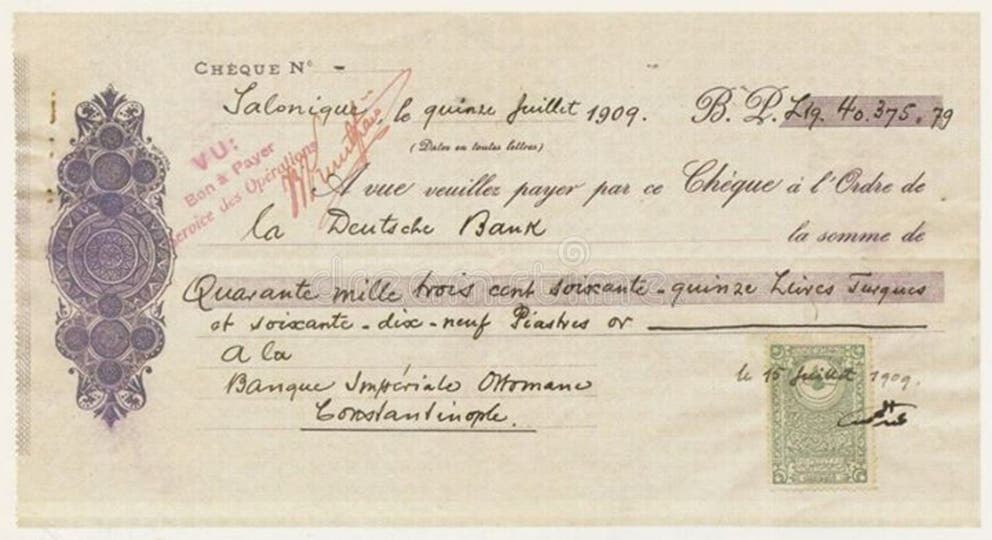 CHÈQUE Nº -
Salonique, le quinze Juillet 1909. B. P. £tq. 40.375.79
(Dates en toutes lettres)
VU:
Bon à Payer
Service des Opérations
A vue veuillez payer par ce Chèque à l'Ordre de
la Deutsche Bank la somme de
Quarante mille trois cent soixante-quinze Livres Turques
et soixante-dix-neuf Piastres or
A la
Banque Impériale Ottomane
Constantinople.
le 15 Juillet 1909.
dreamstime